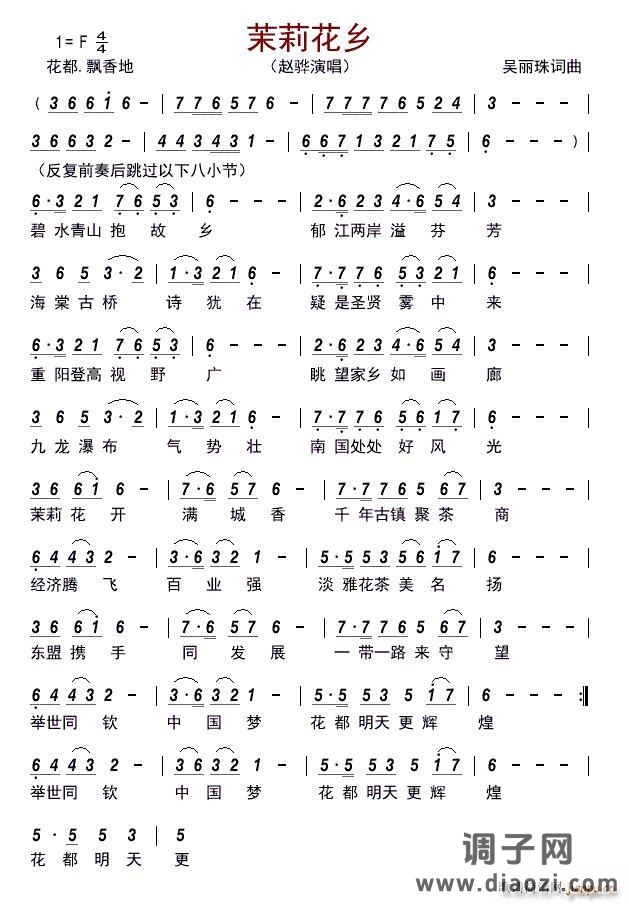 茉莉花乡
1= F 4/4
花都.飘香地 （赵骅演唱） 吴丽珠词曲
( 3 6 6 1 6 - | 7 7 6 5 7 6 - | 7 7 7 7 6 5 2 4 | 3 - - - |
3 6 6 3 2 - | 4 4 3 4 3 1 - | 6 6 7 1 3 2 1 7 5 | 6 - - - )|
（反复前奏后跳过以下八小节）
6·3 2 1 7 6 5 3 | 6 - - - | 2·6 2 3 4·6 5 4 | 3 - - - |
碧 水青山 抱 故 乡 郁 江两岸 溢 芬 芳
3 6 5 3·2 | 1·3 3 2 1 6 - | 7·7 7 6 5 3 2 1 | 6 - - - |
海 棠 古 桥 诗 犹 在 疑 是圣贤 雾 中 来
6·3 2 1 7 6 5 3 | 6 - - - | 2·6 2 3 4·6 5 4 | 3 - - - |
重 阳登高 视 野 广 眺 望家乡 如 画 廊
3 6 5 3·2 | 1·3 3 2 1 6 - | 7·7 7 6 5 6 1 7 | 6 - - - |
九 龙 瀑 布 气 势 壮 南 国处处 好 风 光
3 6 6 1 6 - | 7·6 5 7 6 - | 7·7 7 6 5 6 7 | 3 - - - |
茉莉 花 开 满 城 香 千 年古镇 聚 茶 商
6 4 4 3 2 - | 3·6 3 2 1 6 - | 5·5 5 3 5 6 1 7 | 6 - - - |
经济腾 飞 百 业 强 淡 雅花茶 美 名 扬
3 6 6 1 6 - | 7·6 5 7 6 - | 7·7 7 6 5 6 7 | 3 - - - |
东盟 携 手 同 发 展 一 带一路 来 守 望
6 4 4 3 2 - | 3·6 3 2 1 6 - | 5·5 5 3 1 7 | 6 - - - :||
举世同 钦 中 国 梦 花 都 明天 更 辉 煌
6 4 4 3 2 - | 3 6 3 2 1 6 - | 5·5 5 3 1 7 | 6 - - - |
举世同 钦 中 国 梦 花 都 明天 更 辉 煌
5 · 5 5 3 | 5
花 都 明 天 更
调子网
www.daozi.com